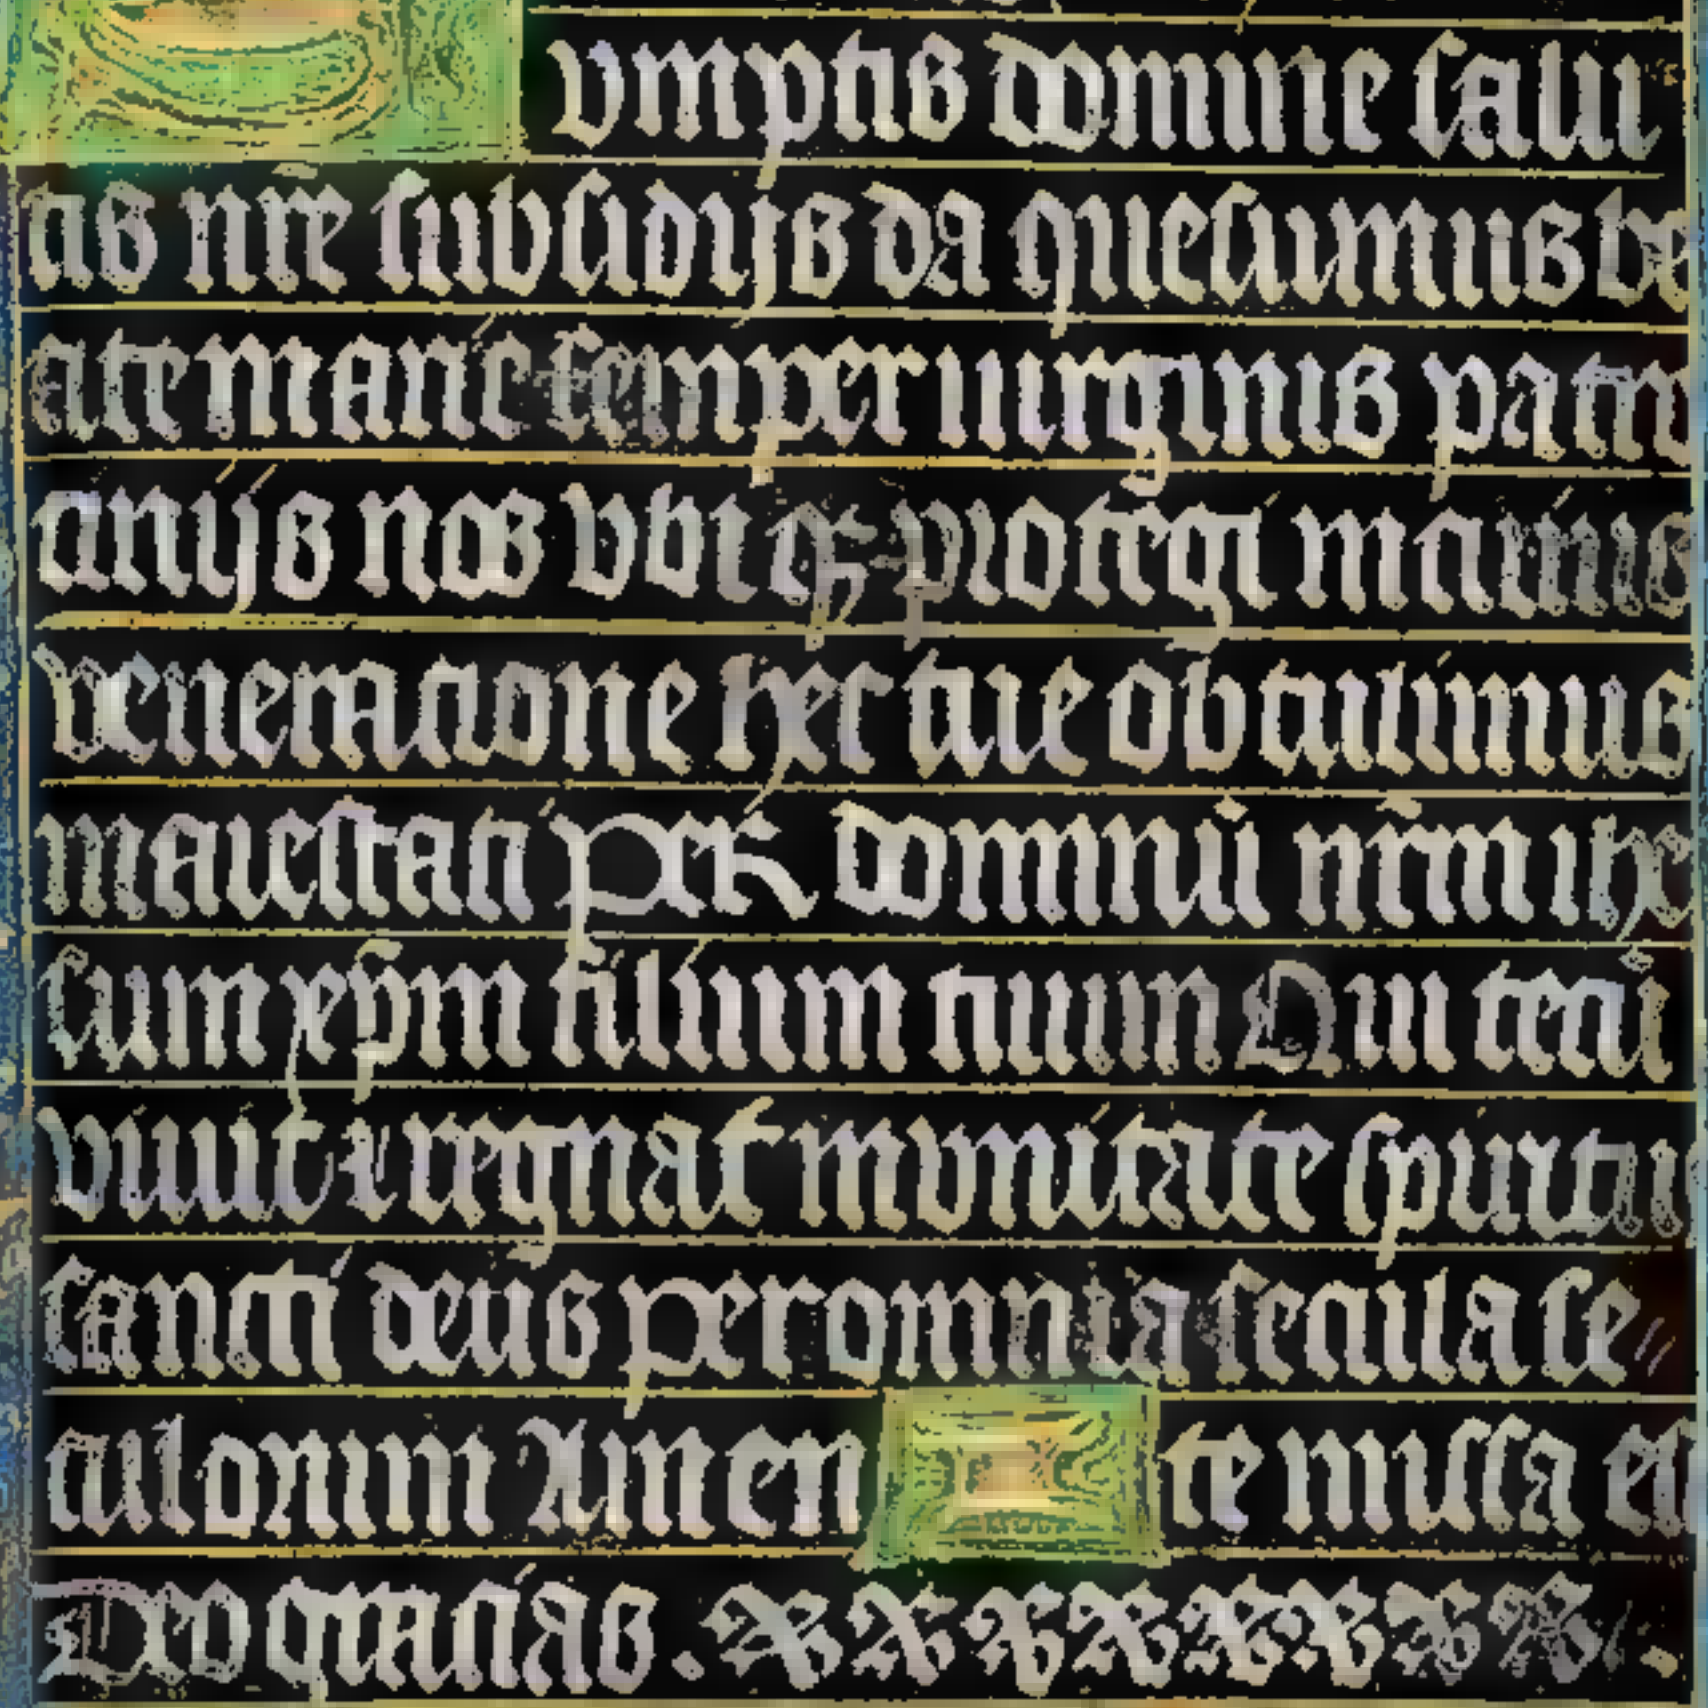 vmptis domine salu
tis nr̄e subsidijs da quesumus be
ate marie semper uirginis patro
cinijs nos vbiqʒ protegi in cuius
veneratione hec tue obtulimus
maiestati per domnū nr̄m ihe
sum xp̄m filium tuum Qui tecū
viuit ⁊ regnat in vnitate spiritu
sancti deus per omnia secula se
culorum Amen te missa est
Deo gracias.